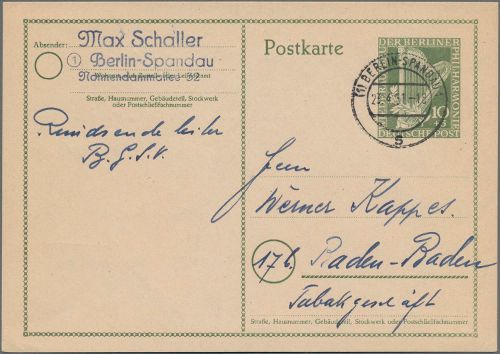 Absender:
Max Schaller
1 Berlin-Spandau
Wohnort, auch Zustell- oder Leitpostamt
Straße, Hausnummer, Gebäudeteil, Stockwerk
oder Postschließfachnummer
Rundsendeleiter
B.G.S.V.
Postkarte
DER BERLINER
PHILHARMONIE
10
+5
DEUTSCHE POST
(1) BERLIN-SPANDAU
s
Herrn
Werner Kappes.
17b. Baden-Baden
Tabakgeschäft
Straße, Hausnummer, Gebäudeteil, Stockwerk oder Postschließfachnummer